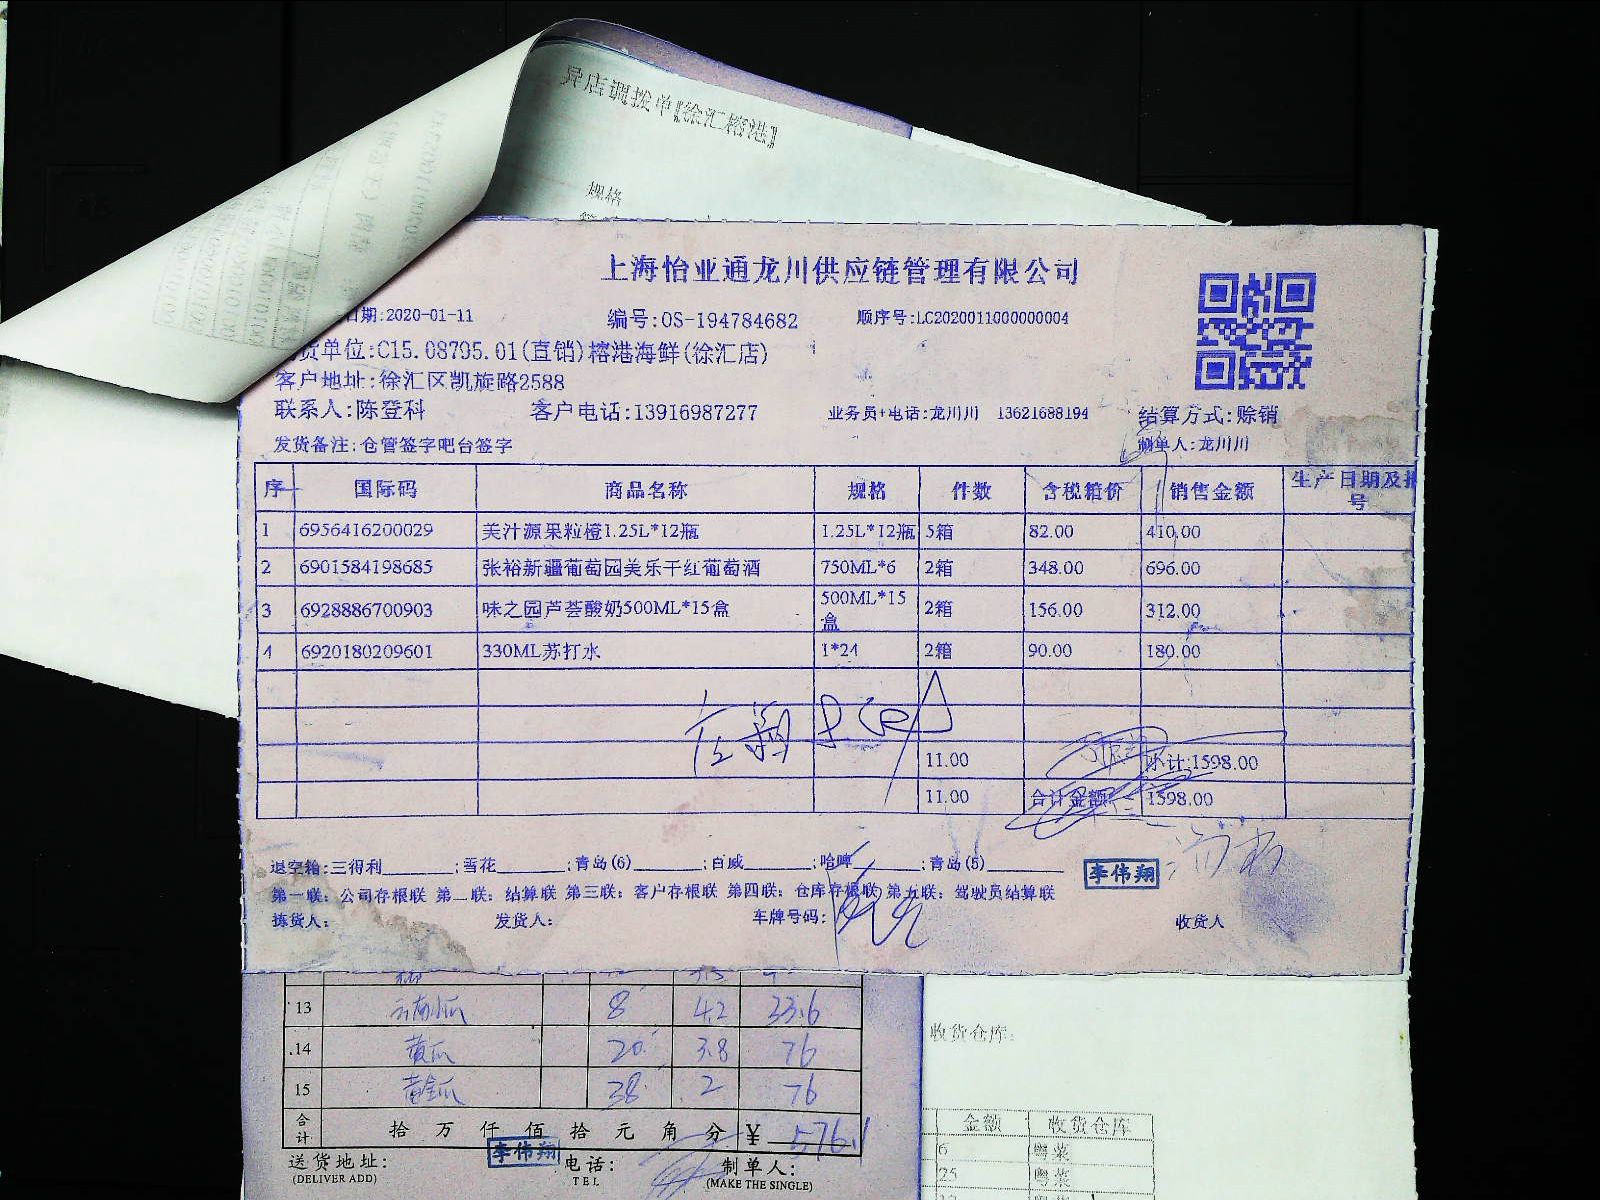 异店调拨单【徐汇榕港】
规格
上海怡亚通龙川供应链管理有限公司
日期:2020-01-11 编号:OS-194784682 顺序号:LC2020011000000004
货单位:C15.08795.01(直销)榕港海鲜(徐汇店)
客户地址:徐汇区凯旋路2588
联系人:陈登科 客户电话:13916987277 业务员+电话:龙川川 13621688194 结算方式:赊销
发货备注:仓管签字吧台签字 制单人:龙川川
序 国际码 商品名称 规格 件数 含税箱价 销售金额 生产日期及批号
1 6956416200029 美汁源果粒橙1.25L*12瓶 1.25L*12瓶 5箱 82.00 410.00
2 6901584198685 张裕新疆葡萄园美乐干红葡萄酒 750ML*6 2箱 348.00 696.00
3 6928886700903 味之园芦荟酸奶500ML*15盒 500ML*15盒 2箱 156.00 312.00
4 6920180209601 330ML苏打水 1*24 2箱 90.00 180.00
11.00 小计:1598.00
11.00 合计金额: 1598.00
退空箱:三得利______;雪花______;青岛(6)______;百威______;哈啤____;青岛(5)______
李伟翔
第一联：公司存根联 第二联：结算联 第三联：客户存根联 第四联：仓库存根联 第五联：驾驶员结算联
拣货人: 发货人: 车牌号码: 收货人
13 8 4.2 33.6
14 黄瓜 20 3.8 76
15 黄金瓜 38 2 76
合计 拾 万 仟 佰 拾 元 角 分 ¥ 576.1
李伟翔
送货地址: 电话: 制单人:
(DELIVER ADD) TEL (MAKE THE SINGLE)
收货仓库:
金额 收货仓库
6 粤菜
25 粤菜